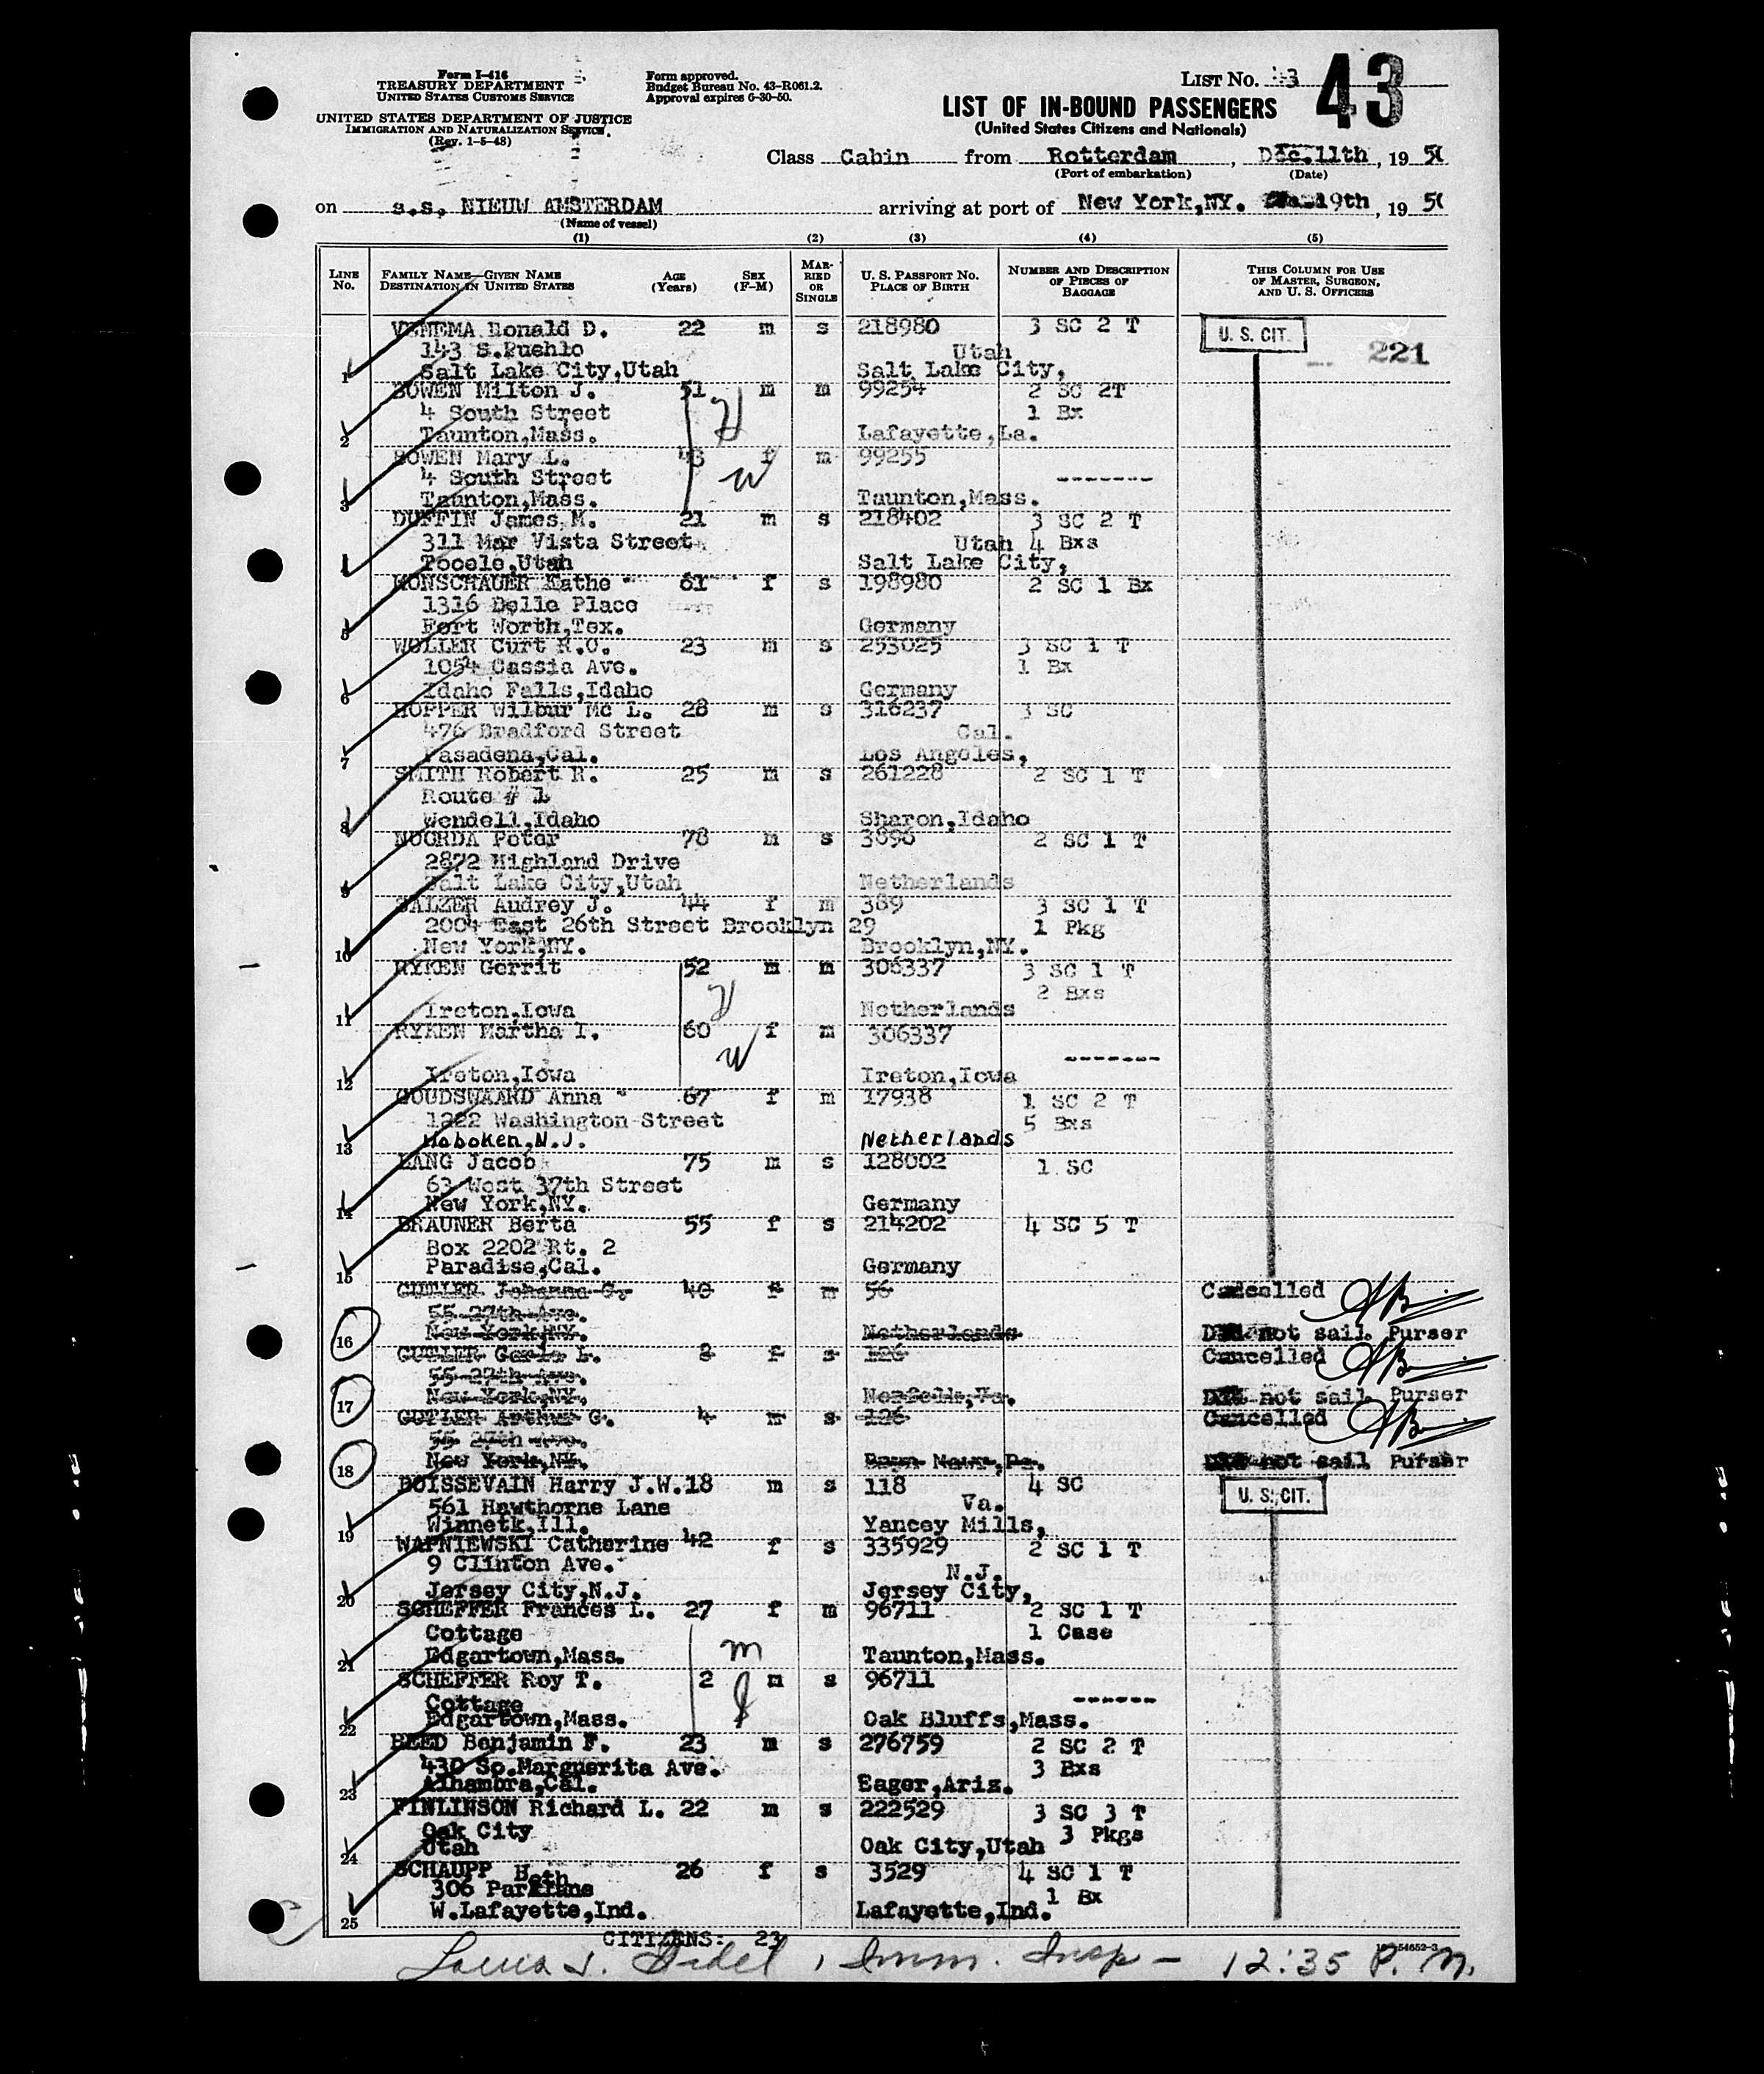 Form I-416
TREASURY DEPARTMENT
UNITED STATES CUSTOMS SERVICE
UNITED STATES DEPARTMENT OF JUSTICE
IMMIGRATION AND NATURALIZATION SERVICE
(Rev. 1-5-48)
Form approved.
Budget Bureau No. 43-R061.2.
Approval expires 6-30-50.
LIST NO. 43 43
LIST OF IN-BOUND PASSENGERS
(United States Citizens and Nationals)
Class Cabin from Rotterdam, Dec.11th, 19 50
(Port of embarkation) (Date)
on s.s. NIEUW AMSTERDAM arriving at port of New York,NY. 19th, 19 50
(Name of vessel)
(1) (2) (3) (4) (5)
LINE NO.
FAMILY NAME—GIVEN NAME
DESTINATION IN UNITED STATES
AGE (Years)
SEX (F-M)
MARRIED OR SINGLE
U. S. PASSPORT NO.
PLACE OF BIRTH
NUMBER AND DESCRIPTION OF PIECES OF BAGGAGE
THIS COLUMN FOR USE OF MASTER, SURGEON, AND U. S. OFFICERS
VENEMA Donald D. 22 m s 218980 3 SC 2 T U. S. CIT.
143 S.Pueblo Utah 221
1 Salt Lake City,Utah Salt Lake City,
BOWEN Milton J. 51 m m 99254 2 SC 2T
4 South Street H 1 Bx
2 Taunton,Mass. Lafayette,La.
BOWEN Mary L. 43 f m 99255
4 South Street W -------
3 Taunton,Mass. Taunton,Mass.
DUFFIN James M. 21 m s 218402 3 SC 2 T
311 Mar Vista Street Utah 4 Bxs
Tooele,Utah Salt Lake City,
MONSCHAUER Kathe 61 f s 198980 2 SC 1 Bx
1316 Belle Place
5 Fort Worth,Tex. Germany
WOLLER Curt R.O. 23 m s 253025 3 SC 1 T
1054 Cassia Ave. 1 Bx
6 Idaho Falls,Idaho Germany
HOPPER Wilbur Mc L. 28 m s 316237 3 SC
476 Bradford Street Cal.
7 Pasadena,Cal. Los Angeles,
SMITH Robert R. 25 m s 261228 2 SC 1 T
Route # 1
8 Wendell,Idaho Sharon,Idaho
NOORDA Peter 78 m s 3896 2 SC 1 T
2872 Highland Drive
9 Salt Lake City,Utah Netherlands
SALZER Audrey J. 44 f m 389 3 SC 1 T
2004 East 26th Street Brooklyn 29 1 Pkg
10 New York,NY. Brooklyn,NY.
RYKEN Gerrit 52 m m 306337 3 SC 1 T
H 2 Bxs
11 Ireton,Iowa Netherlands
RYKEN Martha I. 60 f m 306337
W -------
12 Ireton,Iowa Ireton,Iowa
GOUDSWAARD Anna 67 f m 17938 1 SC 2 T
1222 Washington Street 5 Bxs
13 Hoboken,N.J. Netherlands
LANG Jacob 75 m s 128002 1 SC
63 West 37th Street
14 New York,NY. Germany
BRAUNER Berta 55 f s 214202 4 SC 5 T
Box 2202 Rt. 2
15 Paradise,Cal. Germany
GUTLER Johanna G. 40 f m 56 Cancelled
55 27th Ave.
16 New York,NY. Netherlands Did not sail. Purser
GUTLER L. f s 126 Cancelled
55 27th Ave.
17 New York,NY. Norfolk,Va. Did not sail. Purser
GUTLER Arthur G. 4 m s 126 Cancelled
55 27th Ave.
18 New York,NY. Did not sail Purser
BOISSEVAIN Harry J.W. 18 m s 118 4 SC U. S. CIT.
561 Hawthorne Lane Va.
19 Winnetk,Ill. Yancey Mills,
WAPNIEWSKI Catherine 42 f s 335929 2 SC 1 T
9 Clinton Ave. N.J.
20 Jersey City,N.J. Jersey City,
SCHEFFER Frances L. 27 f m 96711 2 SC 1 T
Cottage m 1 Case
21 Edgartown,Mass. Taunton,Mass.
SCHEFFER Roy T. 2 m s 96711
Cottage ------
22 Edgartown,Mass. Oak Bluffs,Mass.
REED Benjamin F. 23 m s 276759 2 SC 2 T
430 So.Marguerita Ave. 3 Bxs
23 Alhambra,Cal. Eager,Ariz.
FINLINSON Richard L. 22 m s 222529 3 SC 3 T
Oak City 3 Pkgs
24 Utah Oak City,Utah
SCHAUPP Beth 26 f s 3529 4 SC 1 T
306 Park Lane 1 Bx
25 W.Lafayette,Ind. Lafayette,Ind.
CITIZENS: 23
Imm. Insp - 12:35 P.M.